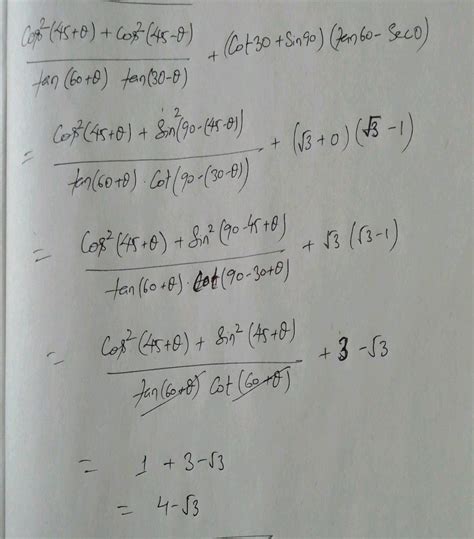 cos²(45+θ) + cos²(45-θ) / tan(60+θ) tan(30-θ) + (cot30 + sin90) (tan60 - sec0)
= cos²(45+θ) + sin²(90-(45-θ)) / tan(60+θ) · cot(90-(30-θ)) + (√3 + 0) (√3 - 1)
= cos²(45+θ) + sin²(90-45+θ) / tan(60+θ) · cot(90-30+θ) + √3 (√3-1)
= cos²(45+θ) + sin²(45+θ) / tan(60+θ) cot(60+θ) + 3 - √3
= 1 + 3 - √3
= 4 - √3